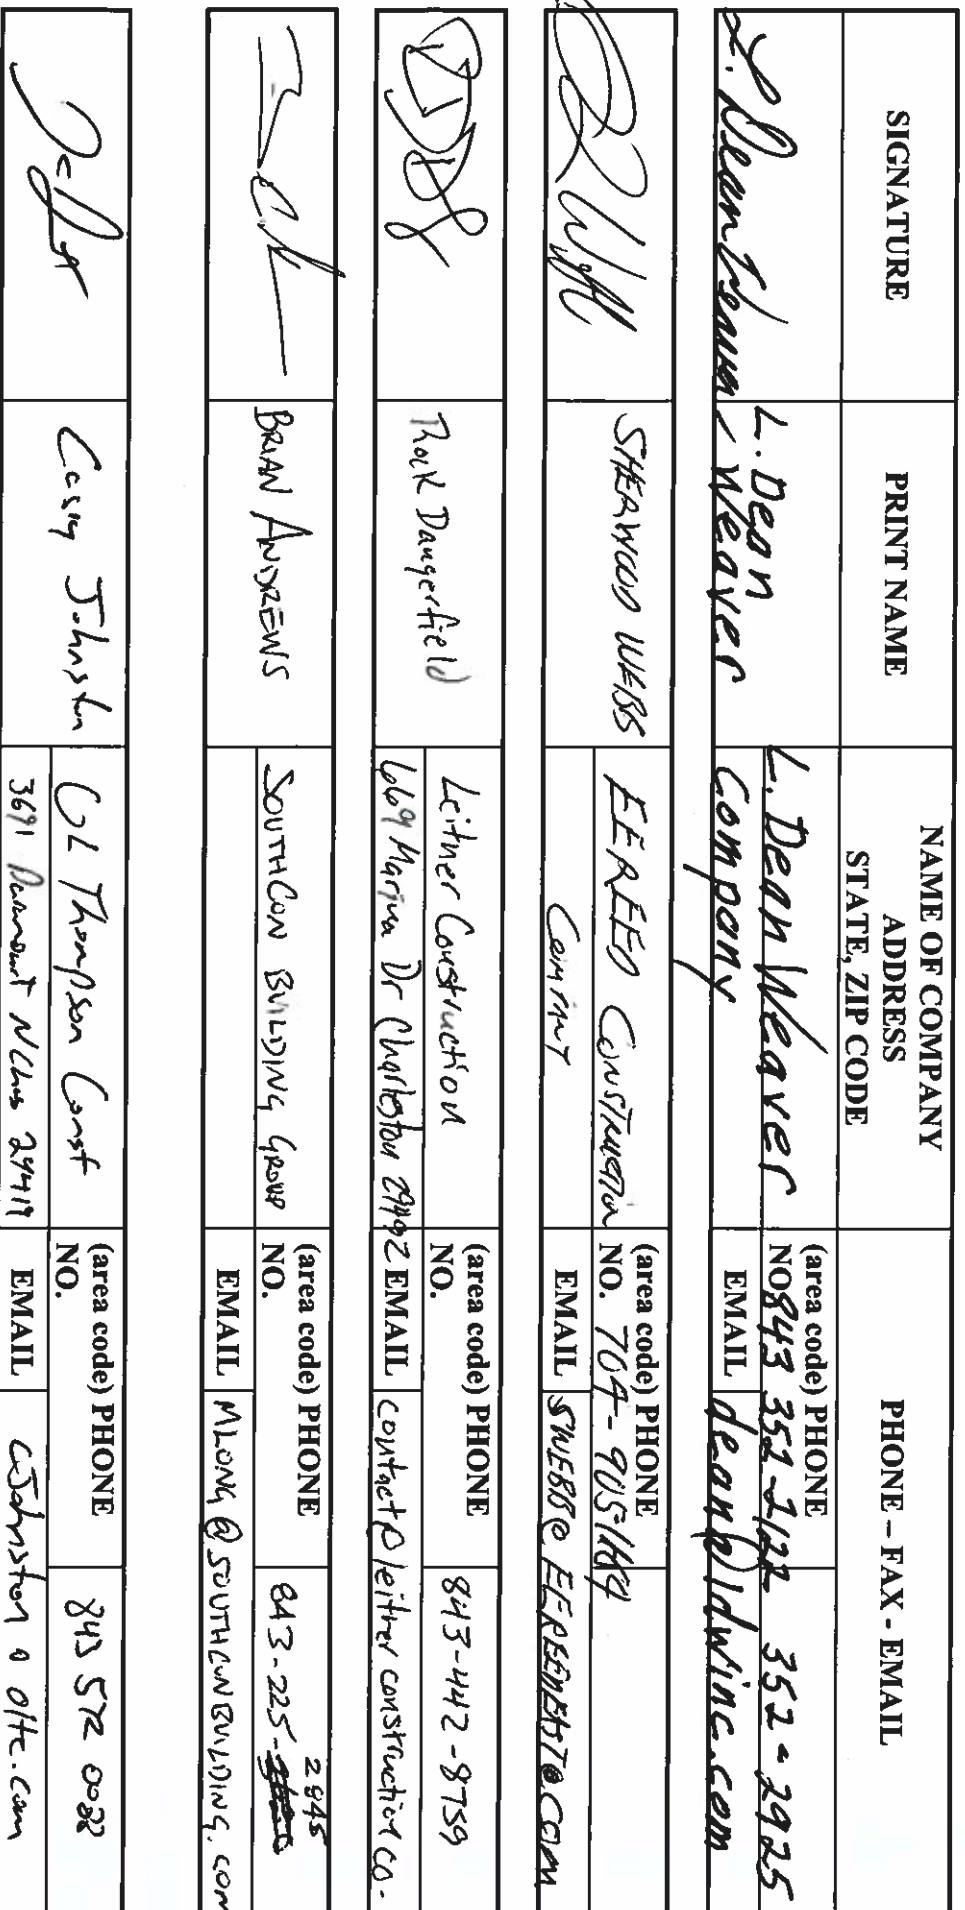 SIGNATURE
PRINT NAME
NAME OF COMPANY
ADDRESS
STATE, ZIP CODE
PHONE – FAX - EMAIL
L. Dean Weaver
L. Dean
Weaver
L. Dean Weaver
Company
(area code) PHONE
NO. 843 352-2122 352-2925
EMAIL dean@ldwinc.com
SHERWOOD WEBB
EEREED CONSTRUCTION
(area code) PHONE
NO. 704-905-1164
EMAIL SWEBB@EEREEDEAST@.COM
Thock Dangerfield
Leitner Construction
669 Marina Dr Charleston 29492
(area code) PHONE
NO. 843-442-8759
EMAIL contact@leitnerconstructionco.
BRIAN ANDREWS
SOUTHCON BUILDING GROUP
(area code) PHONE
NO. 843-225-2845
EMAIL MLONG@SOUTHCONBUILDING.COM
Casey Johnston
OL Thompson Const
3691 NChas 29419
(area code) PHONE
NO. 843 572 0088
EMAIL cJohnston@oltc.com